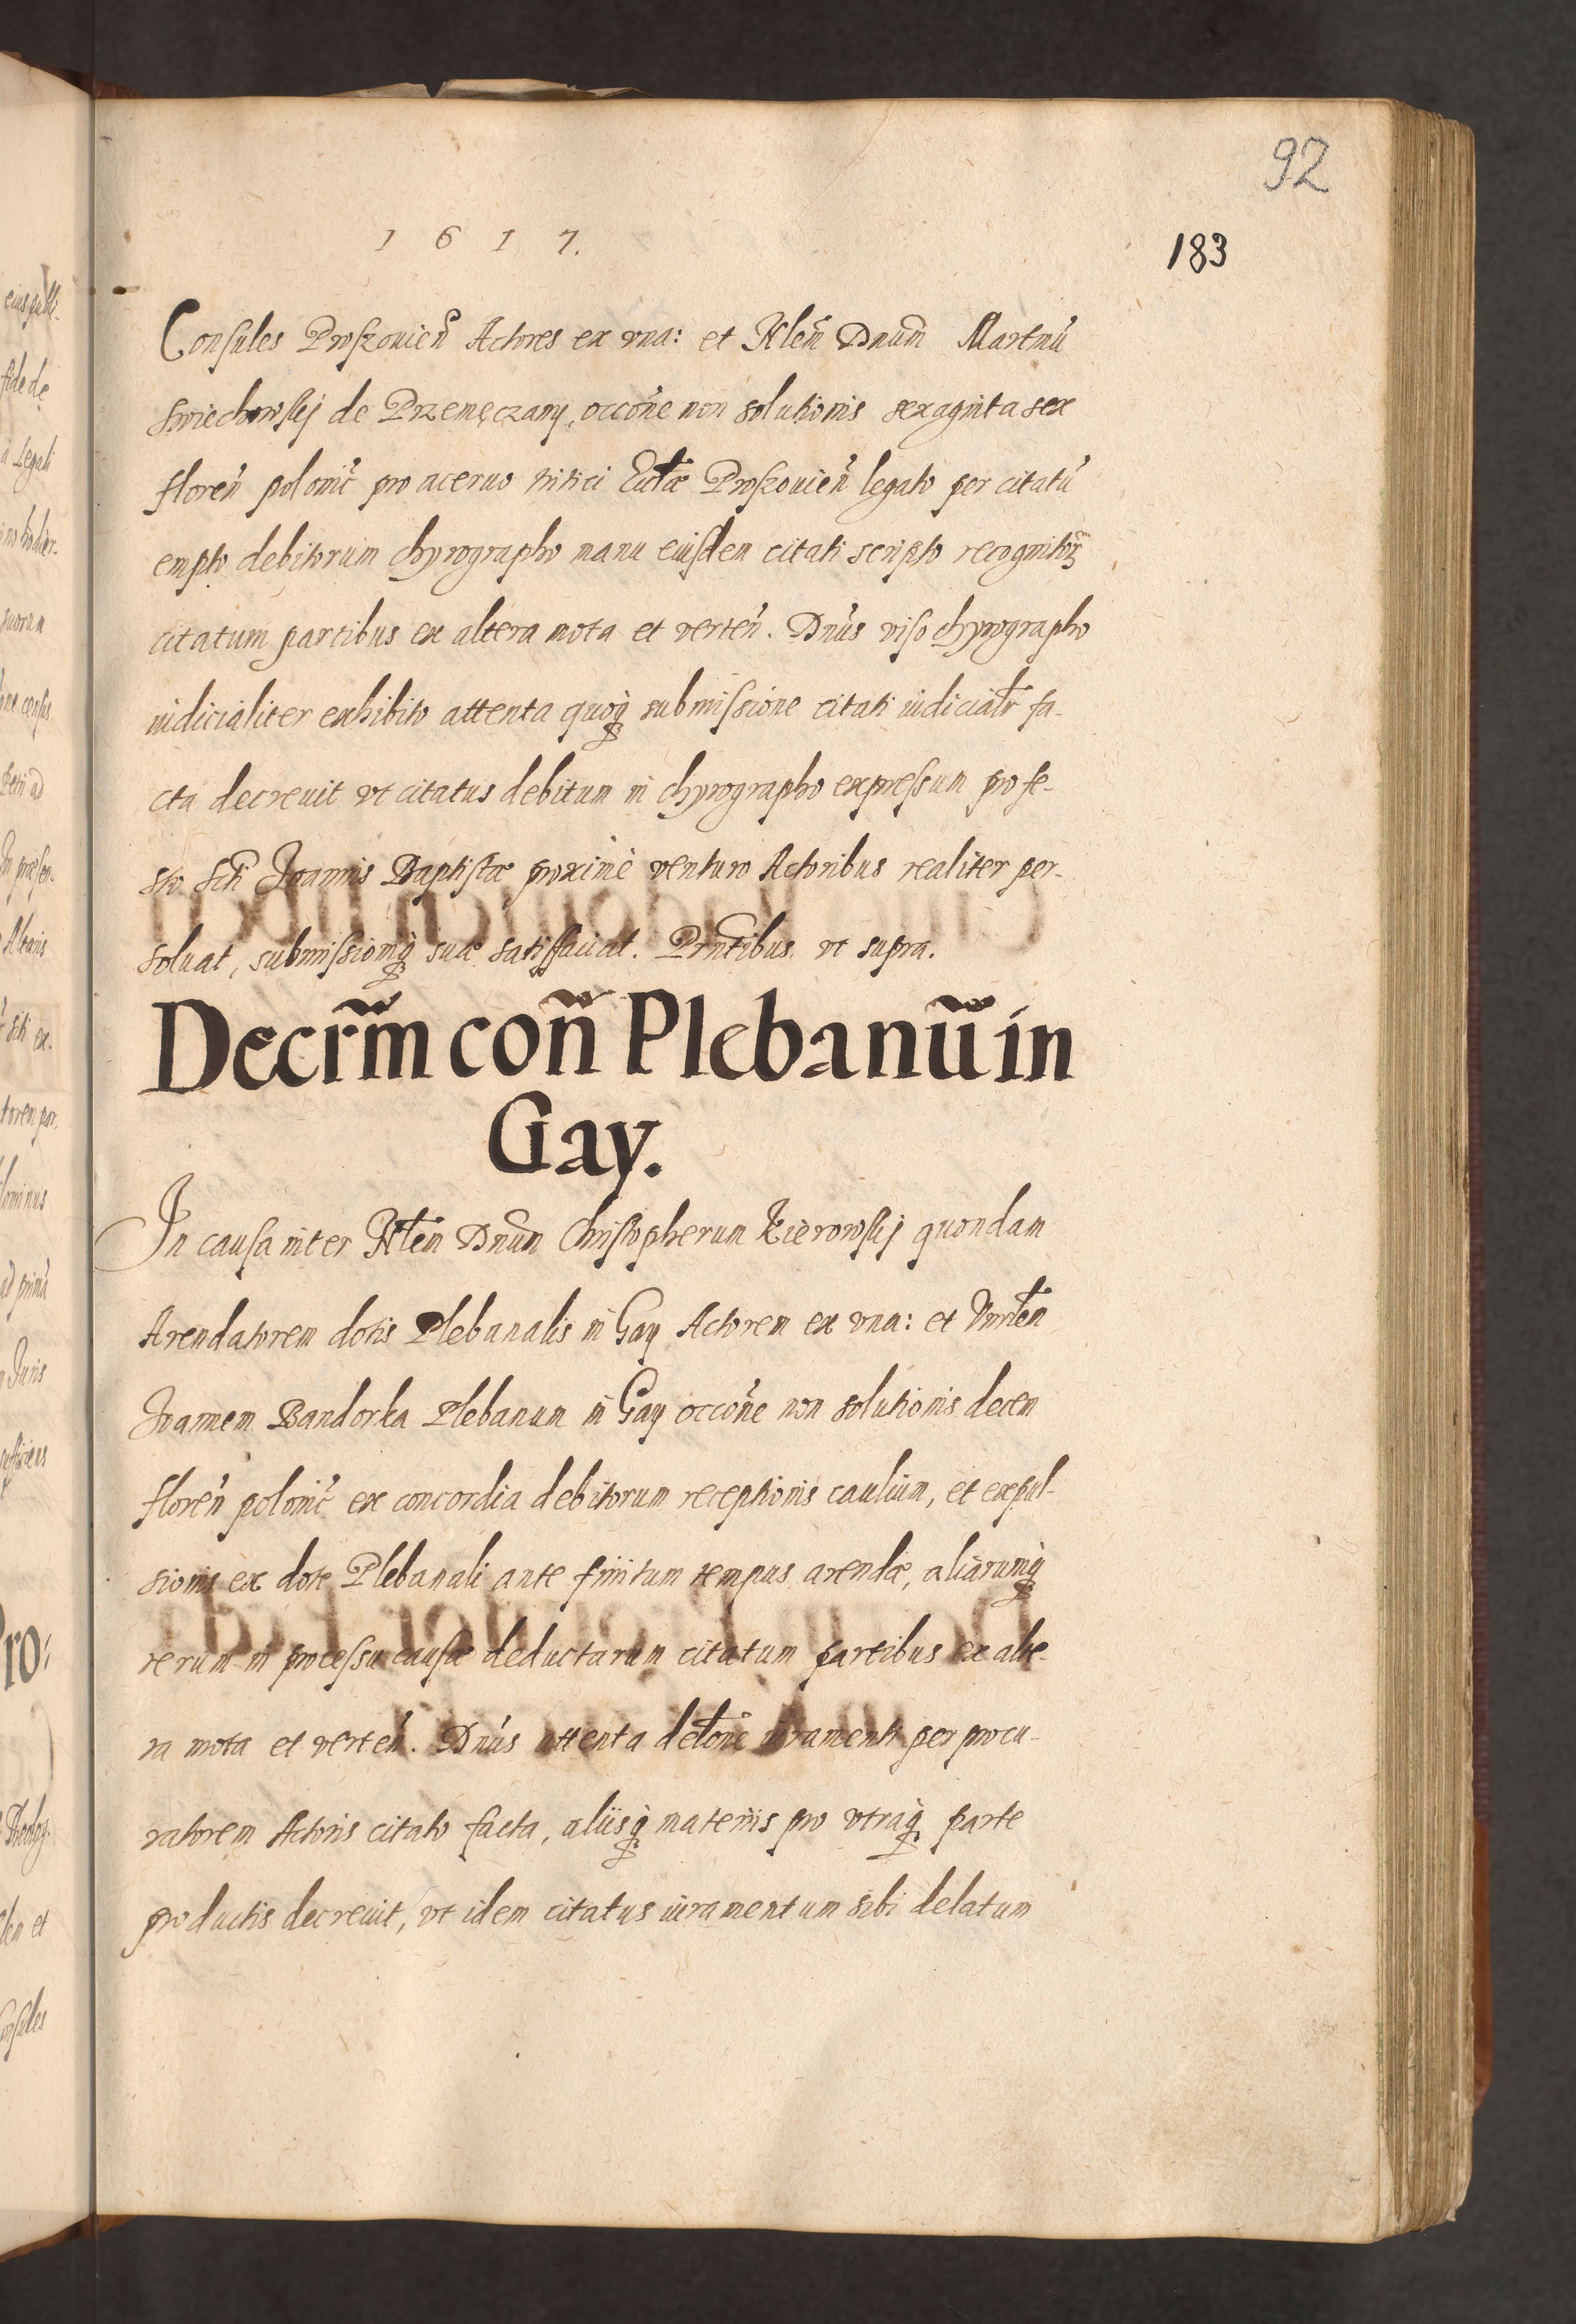 92
1 6 1 7.
183
Consules Proszouien̄ Actores ex vna: et Nlem̄ Dnum̄ Martinū
Swiechowskij de Przemęczany, occōne non solutionis sexaginta sex
floren̄ polonic̄ pro aceruo tritici Ecclæ Proszouien̄ legato per citatū
empto debitorum chyrographo manu eiusdem citati scripto recognitorꝝ
citatum partibus ex altera mota et verten̄. Dnūs viso chyrographo
iudicialiter exhibito attenta quoqꝫ submissione citati iudicialr̄ fa-
cta decreuit vt citatus debitum in chyrographo expressum pro fe-
sto Scti Joannis Baptistæ proximè venturo Actoribus realiter per-
soluat, submissioniqꝫ suæ satisfaciat. Prn̄tibus vt supra.
Decrm̄ con̄ Plebanū in
Gay.
In causa inter Nlem̄ Dnum̄ Christopherum Kierowskij quondam
Arendatorem dotis Plebanalis in Gay Actorem ex vna: et Vnrlem
Joannem Bandorka Plebanum in Gay occōne non solutionis decem
floren̄ polonic̄ ex concordia debitorum receptionis caulium, et expul-
sionis ex dote Plebanali ante finitum tempus arendæ, aliarumqꝫ
rerum in processu causæ deductarum citatum partibus ex alte-
ra mota et verten̄. Dnūs attenta delōne iuramenti per procu-
ratorem Actoris citato facta, aliisqꝫ materiis pro vtraqꝫ parte
productis decreuit, vt idem citatus iuramentum sibi delatum